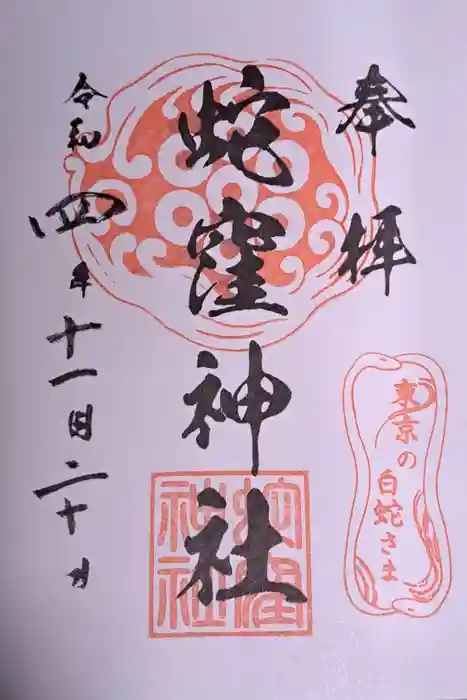 奉拝
蛇窪神社
令和四年十一月二十日
東京の
白蛇さま
蛇窪
神社